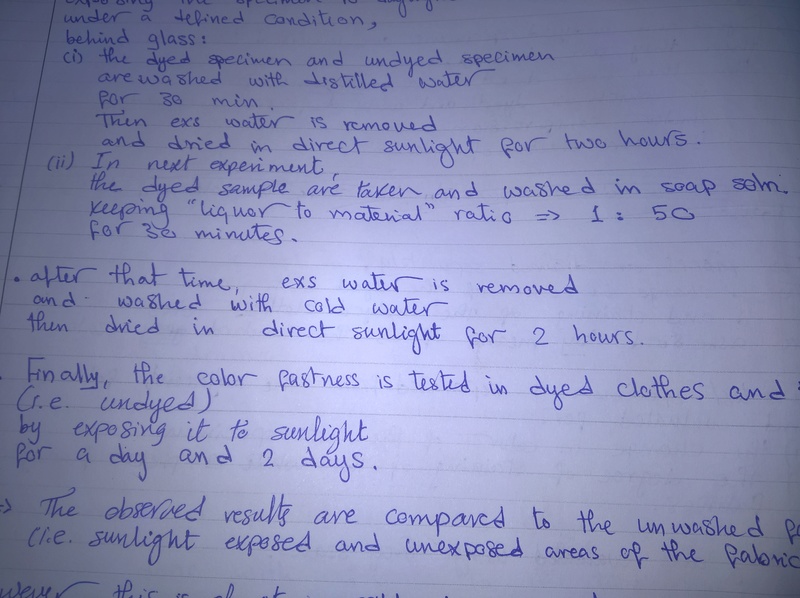 under a defined condition,
behind glass:
(i) the dyed specimen and undyed specimen
are washed with distilled water
for 30 min.
Then exs water is removed
and dried in direct sunlight for two hours.
(ii) In next experiment,
the dyed sample are taken and washed in soap soln.
keeping "liquor to material" ratio => 1 : 50
for 30 minutes.
• after that time, exs water is removed
and washed with cold water
then dried in direct sunlight for 2 hours.
Finally, the color fastness is tested in dyed clothes and
(i.e. undyed)
by exposing it to sunlight
for a day and 2 days.
=> The observed results are compared to the unwashed
(i.e. sunlight exposed and unexposed areas of the fabric